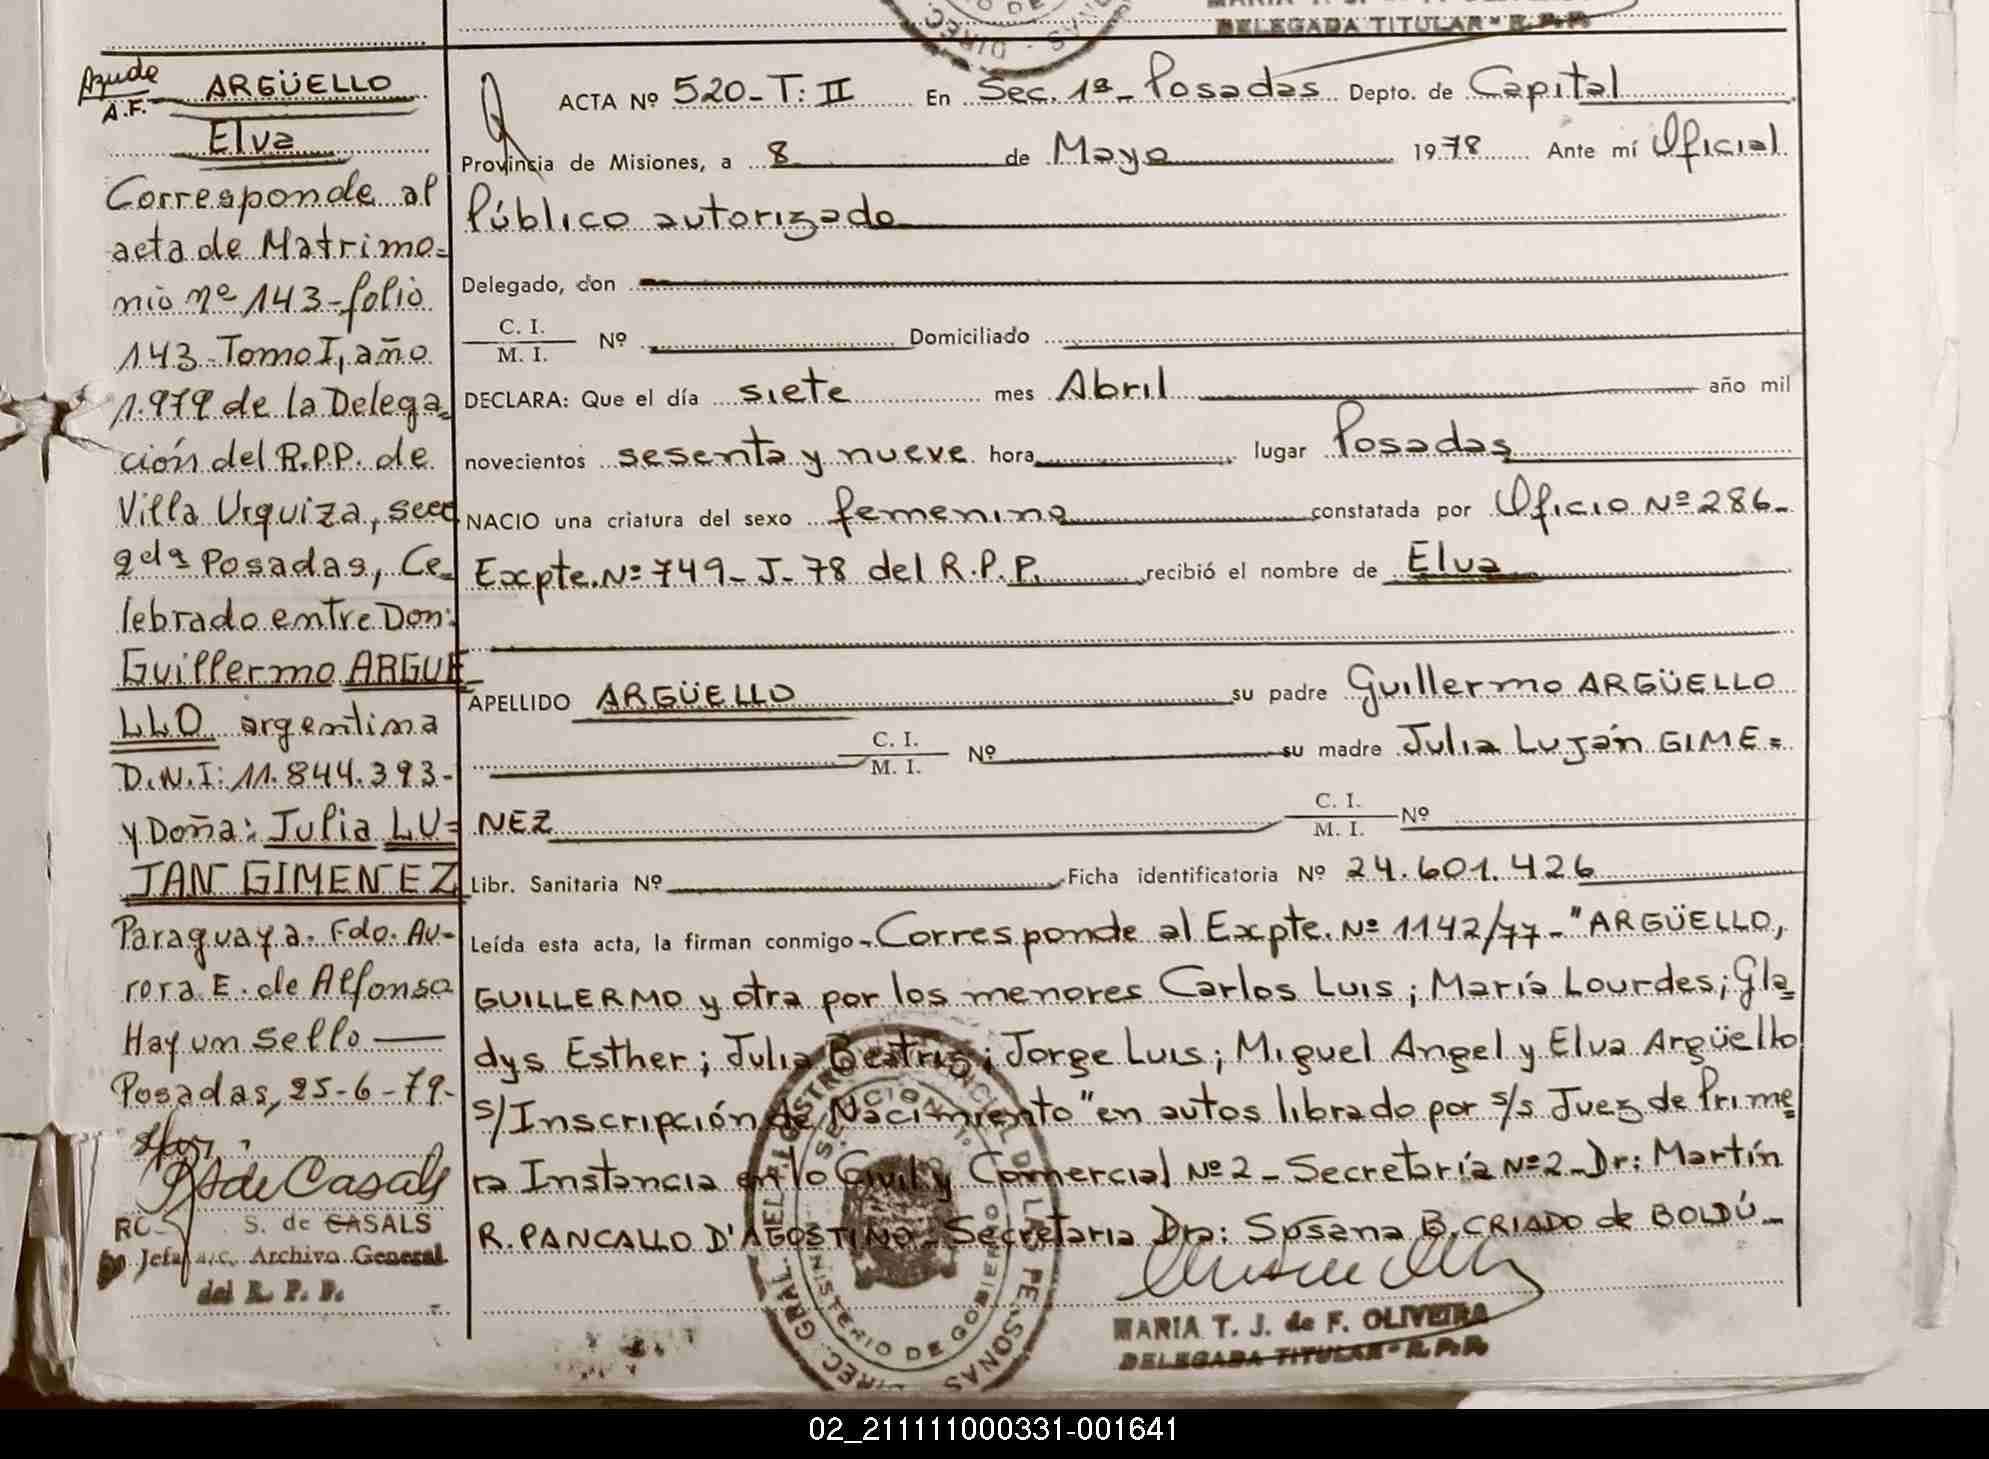 DELEGADA TITULAR - R. P. P.
Ayude
A.F.
ARGÜELLO
Elva
Corresponde al
acta de Matrimo=
nio nº 143-folio
143-Tomo I, año
1.979 de la Delega=
ción del R.P.P. de
Villa Urquiza, secc
2da Posadas, Ce=
lebrado entre Don:
Guillermo ARGUE
LLO argentina
D.N.I: 11.844.393-
y Doña: Julia LU=
JAN GIMENEZ
Paraguaya. Fdo. Au-
rora E. de Alfonso
Hay un sello —
Posadas, 25-6-79.-
S. de CASALS
Jefa a/c. Archivo General
del R. P. P.
ACTA Nº 520-T: II En Sec. 1ª- Posadas Depto. de Capital
Provincia de Misiones, a 8 de Mayo 1978 Ante mí Oficial
Público autorizado
Delegado, don
C. I.
M. I. Nº Domiciliado
DECLARA: Que el día siete mes Abril año mil
novecientos sesenta y nueve hora lugar Posadas
NACIO una criatura del sexo femenino constatada por Oficio Nº 286-
Expte. Nº 749-J-78 del R.P.P. recibió el nombre de Elva
APELLIDO ARGÜELLO su padre Guillermo ARGÜELLO
C. I.
M. I. Nº su madre Julia Luján GIME=
NEZ C. I.
M. I. Nº
Libr. Sanitaria Nº Ficha identificatoria Nº 24.601.426
Leída esta acta, la firman conmigo - Corresponde al Expte. Nº 1142/77- "ARGÜELLO,
GUILLERMO y otra por los menores Carlos Luis; María Lourdes; Gla=
dys Esther; Julia Beatriz; Jorge Luis; Miguel Angel y Elva Argüello
s/Inscripción de Nacimiento" en autos librado por s/s Juez de Prime=
ra Instancia en lo Civil y Comercial Nº 2- Secretaría Nº 2- Dr: Martín
R. PANCALLO D'AGOSTINO- Secretaria Dra: Susana B. CRIADO de BOLDÚ-
MARIA T. J. de F. OLIVEIRA
DELEGADA TITULAR - R. P. P.
MINISTERIO DE GOBIERNO
02_211111000331-001641